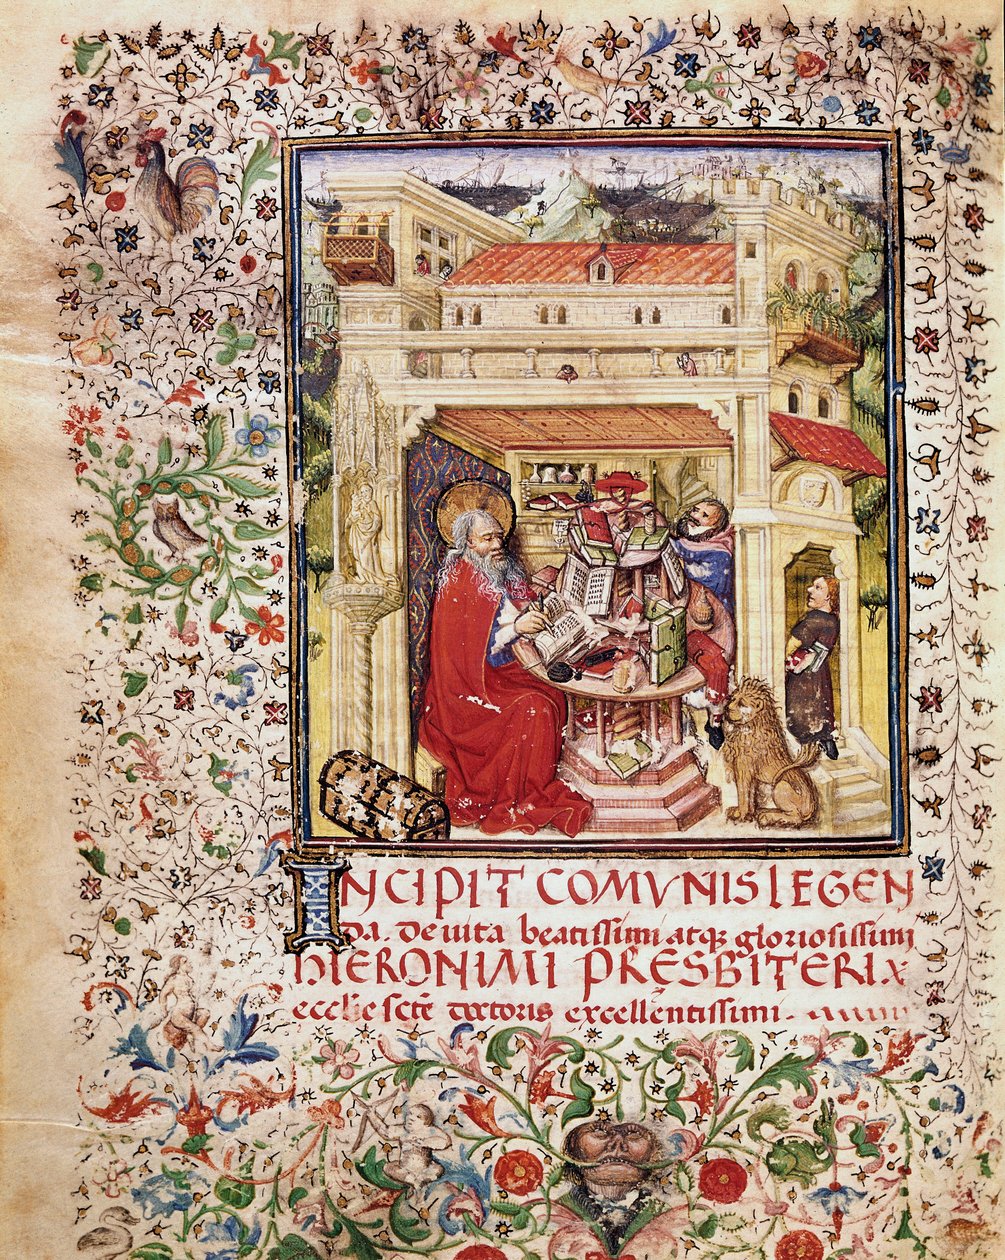 INCIPIT COMVNIS LEGEN
da. de uita beatissimi atqꝫ gloriosissimi
HIERONIMI PRESBITERI X
ecclie scte doctoris excellentissimi.